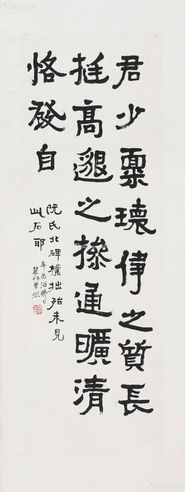 君少禀瓌伟之質長
挺高邈之操通曠清
恪發自
阮氏北碑樸拙殆未見
此石耶